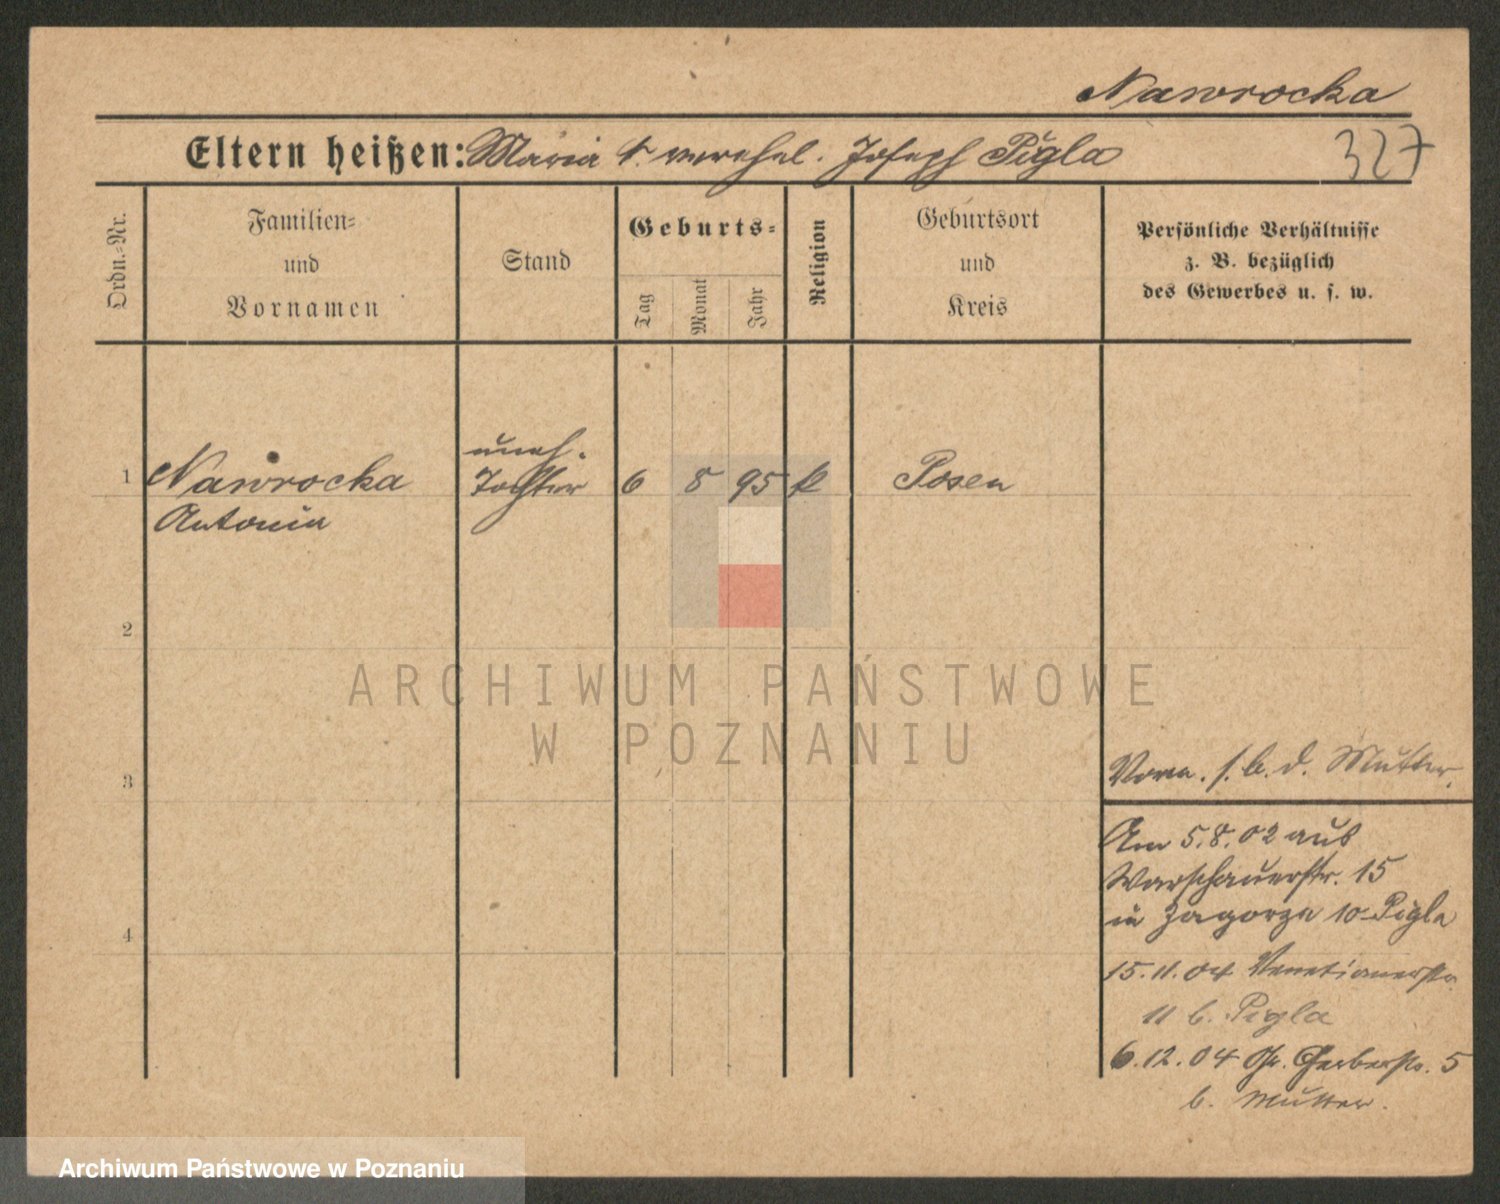 Nawrocka
Eltern heißen: Maria N. verehel. Joseph Pigla 327
Ordn.-Nr.
Familien-
und
Vornamen
Stand
Geburts-
Tag
Monat
Jahr
Religion
Geburtsort
und
Kreis
Persönliche Verhältnisse
z. B. bezüglich
des Gewerbes u. s. w.
uneh.
1 Nawrocka Tochter 6 8 95 k Posen
Antonia
2
ARCHIWUM PAŃSTWOWE
W POZNANIU
3
Vorm. s. b. d. Mutter.
Am 5.8.02 aus
Warschauerstr. 15
in Zagorze 10 Pigla
4
15.11.04 Venetianerstr.
11 b. Pigla
6.12.04 Gr. Gerberstr. 5
b. Mutter.
Archiwum Państwowe w Poznaniu